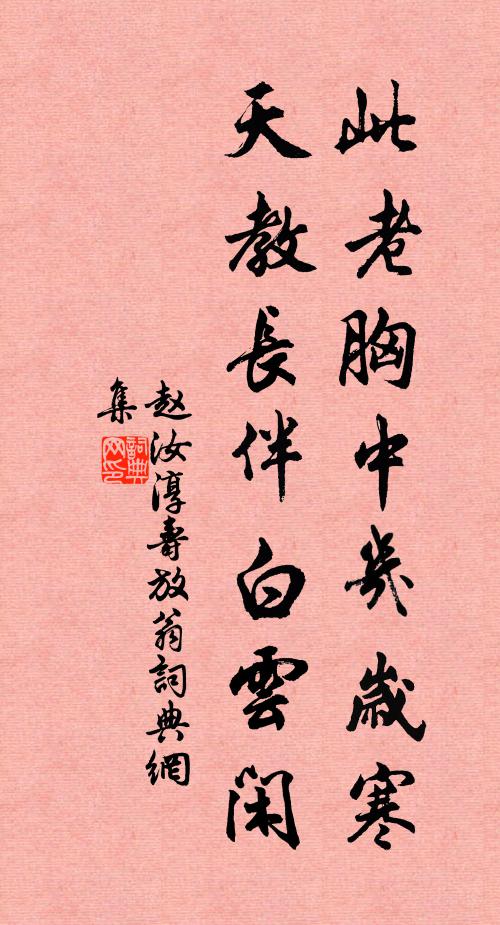 此老胸中幾歲寒
天教長伴白雲閑
赵汝淳壽放翁詞典網
集
詞典
网印